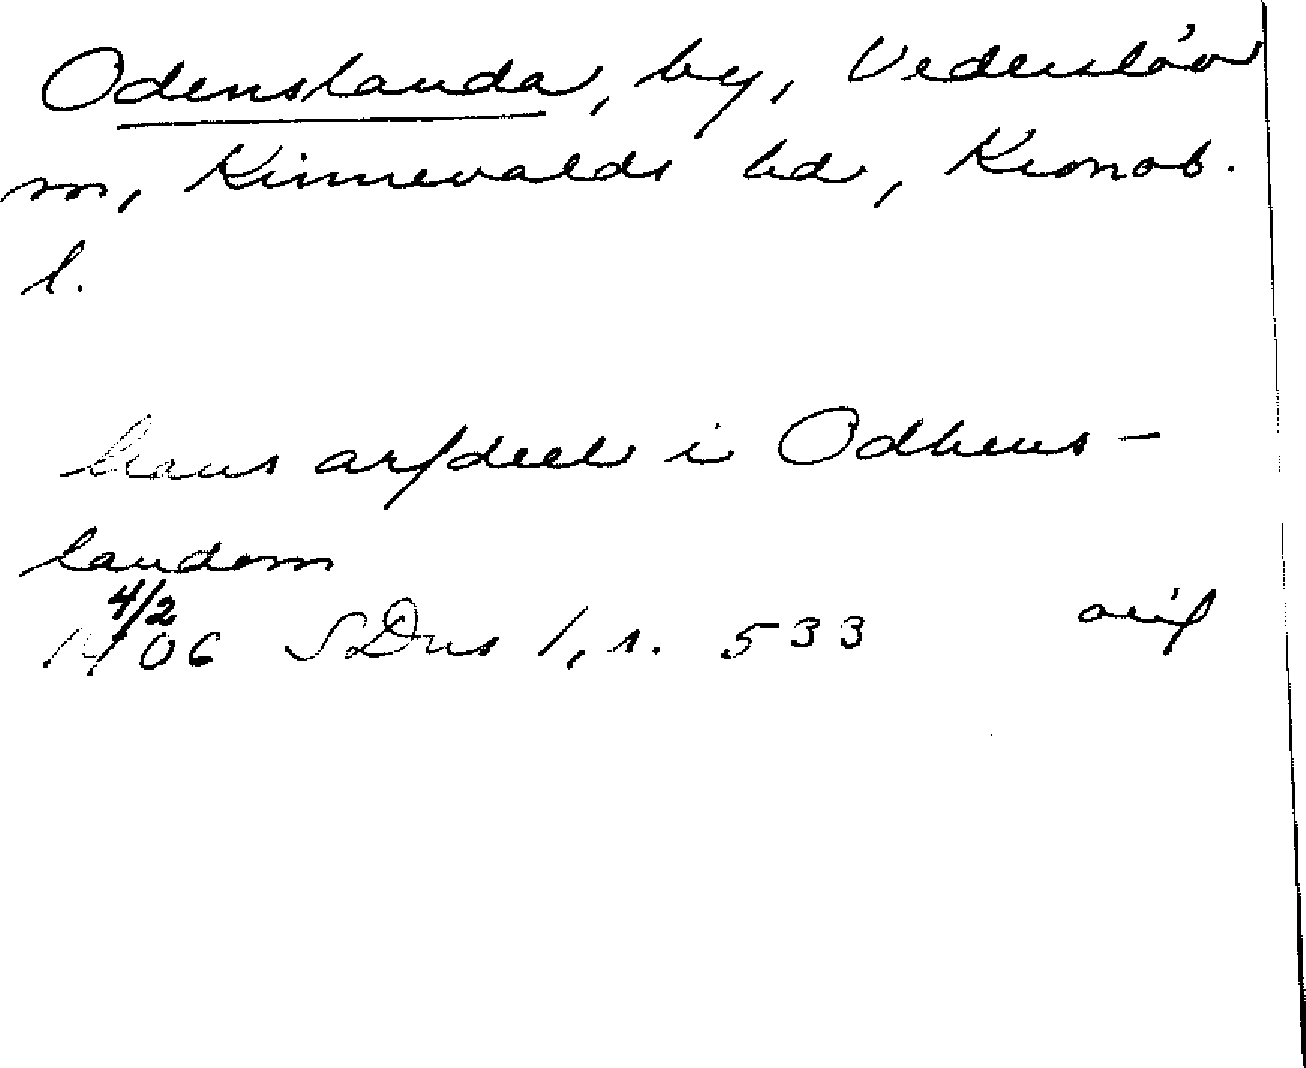 Odenslanda, by, Vederslöv
sn, Kinnevalds hd, Kronob.
l.
hans arfdeel i Odhens-
landom
4/2
1406 SDns 1, s. 533 orig